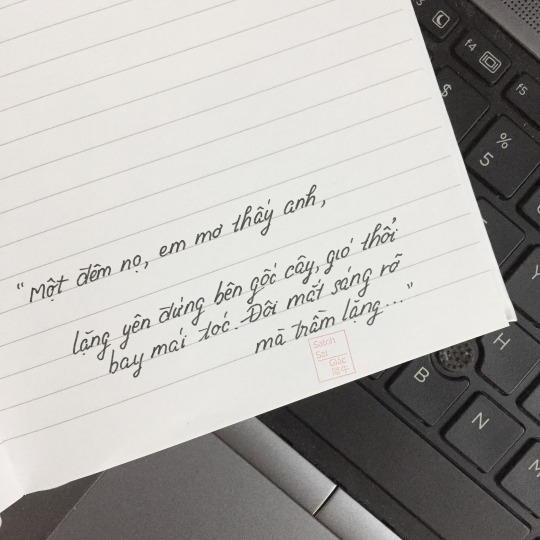 "Một đêm nọ, em mơ thấy anh,
lặng yên đứng bên gốc cây, gió thổi
bay mái tóc. Đôi mắt sáng rỡ
mà trầm lặng..."
Satch
Sát
Giác
f4
f5
$
%
5
H
B
N
M